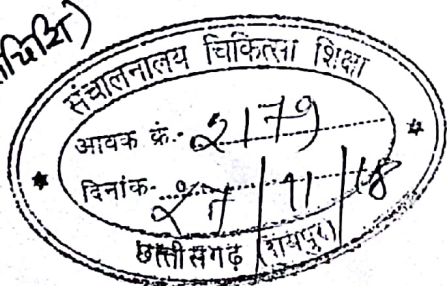 संचालनालय चिकित्सा शिक्षा
आवक क्रं.- 2179
दिनांक- 27/11/18
छत्तीसगढ़ (रायपुर)